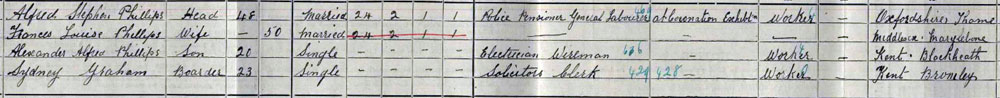 Alfred Stephen Phillips Head 48 Married 24 2 1 1 Police Pensioner General Labourer at Coronation Exhibitn Worker — Oxfordshire Thame
Frances Louise Phillips Wife — 50 Married 24 2 1 1 — — — — Middlesex Marylebone
Alexander Alfred Phillips Son 20 Single — — — — Electrician Wireman 636 — Worker — Kent Blackheath
Sydney Graham Boarder 23 Single — — — — Solicitors Clerk 428 — Worker — Kent Bromley